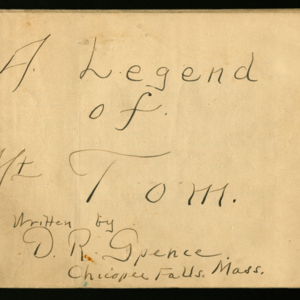 A. Legend
of.
Mt Tom.
Written by
D. R. Spence.
Chicopee Falls. Mass.